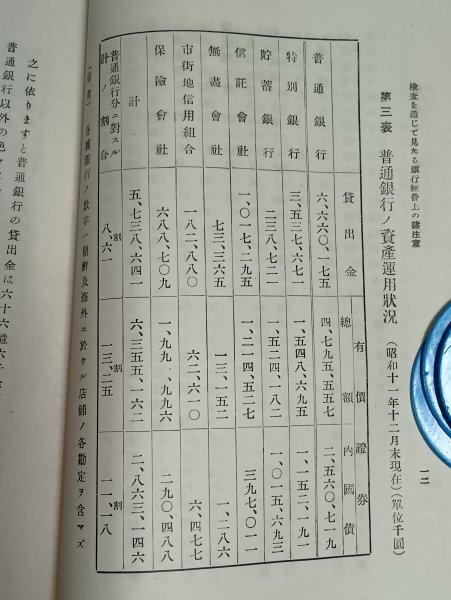 檢査を通じて見たる銀行經營上の諸注意
一二
第三表 普通銀行ノ資產運用狀況 (昭和十一年十二月末現在)(單位千圓)
貸出金
有價證券
總額
內國債
普通銀行 六、六六〇、一七五 四、七九五、五五七 二、五六〇、七一九
特別銀行 三、五三七、六七一 一、五四八、六九五 一、一五二、一九一
貯蓄銀行 二三八、七二一 一、五二四、一八二 一、〇一五、六九三
信託會社 一、〇一七、二九五 一、二一四、五二七 三九七、〇一一
無盡會社 七三、三六五 一三、一五二 一、二八六
市街地信用組合 一八二、八八〇 六二、六一〇 六、四七七
保險會社 六八八、七〇九 一、九九一、九九六 二九〇、四八八
計 五、七三八、六四一 六、三五五、一六二 二、八六三、一四六
普通銀行分ニ對スル計ノ割合 割 八、六一 割 一三、二五 割 一一、一八
(備考) 各種銀行ノ數字ハ朝鮮及海外ニ於ケル店舖ノ各勘定ヲ含マズ
之に依りますと普通銀行の貸出金は六十六億六千
普通銀行以外の色